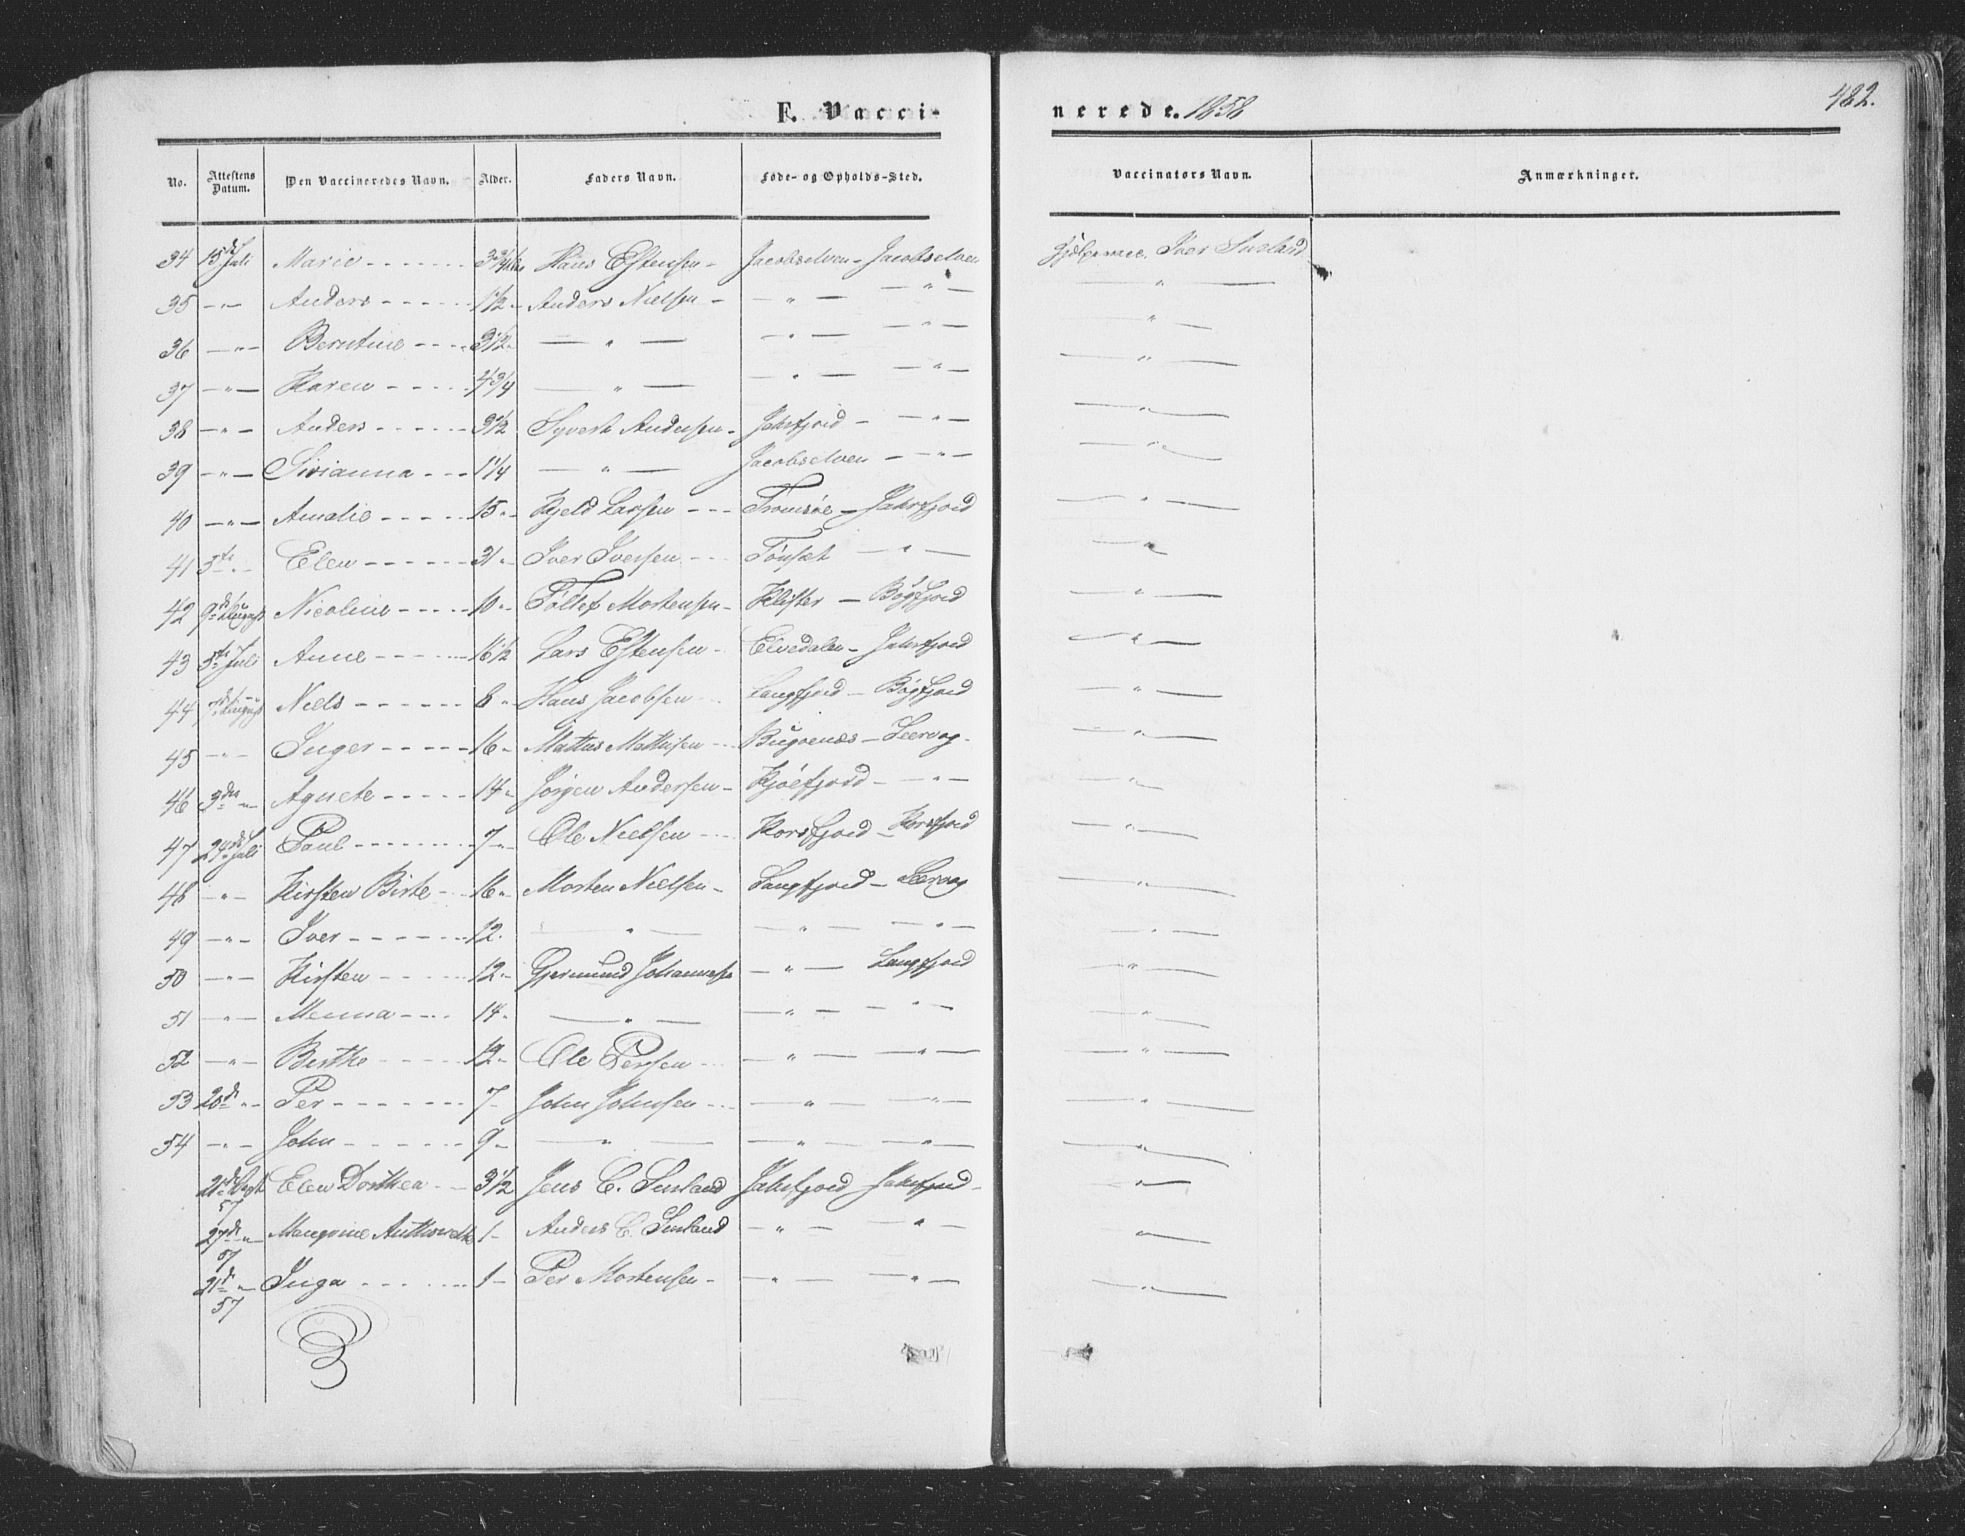 F. Vaccinerede. 1858
482.
No. Attestens Datum. Den Vaccineredes Navn. Alder. Faders Navn. Føde- og Opholds-Sted. Vaccinators Navn. Anmærkninger.
34 15de Juli Marie - - - Hans Estensen - Jacobselven - Jacobselven Iver
35 — " — Anders - - - 1 1/2 - Anders Nielsen - — " — — " — — " —
36 — " — Berntine - - - 3 1/2 - — " — — " — — " — — " —
37 — " — Karen - - - 4 3/4 — " — — " — — " — — " —
38 — " — Anders - - - 3 1/2 Syvert Andersen - Jakofjord - — " — — " —
39 — " — Sirianna - - - 1 1/4 — " — Jacobselven - — " — — " —
40 — " — Amalie - - - 15 " Kjeld Larsen - - - Tromsøe - Jakofjord — " —
41 5te " - Elen - - - 31 " Iver Iversen - - - Tønset — " — — " —
42 9de August Nicoline - - - 10 " Tollef Mortensen - Klöfter - Bøgfjord — " —
43 5te Juli Anne - - - 16 1/2 Lars Estensen - Elvedalen - Jakofjord — " —
44 August Niels - - - 8 " Hans Jacobsen Langfjord - Bøgfjord — " —
45 — " — Inger - - - 16 " Mattas Mathisen - - Bugoenæs - Leervog - — " —
46 3die " - Agnete - - - 14 " Jörgen Andersen - Kjöefjord - — " — — " —
47 24de Juli Paul - - - 7 " Ole Nielsen - - - Korsfjord - Korsfjord — " —
48 — " — Kirsten Birte - 16 " Morten Nielsen - Langfjord - Leervog — " —
49 — " — Iver - - - 12 " — " — — " — — " — — " —
50 — " — Kirsten - - - 12 " Gjermund Johannesen — " — Langfjord — " —
51 — " — Menna - - - 14 " — " — — " — — " — — " —
52 — " — Berthe - - - 12 " Ole Persen - - - — " — — " — — " —
53 20de " - Per - - - 7 - John Johnsen - - - — " — — " — — " —
54 — " — John - - - 9 - — " — — " — — " — — " —
21de 57 Elen Dorthea - - 3 1/2 Jens C. Jakofjord Jakofjord - — " —
27de " 57 1 - Anders C. — " — — " — — " —
21de " 57 Inga - - - 1 - Per Mortensen - — " — — " — — " —